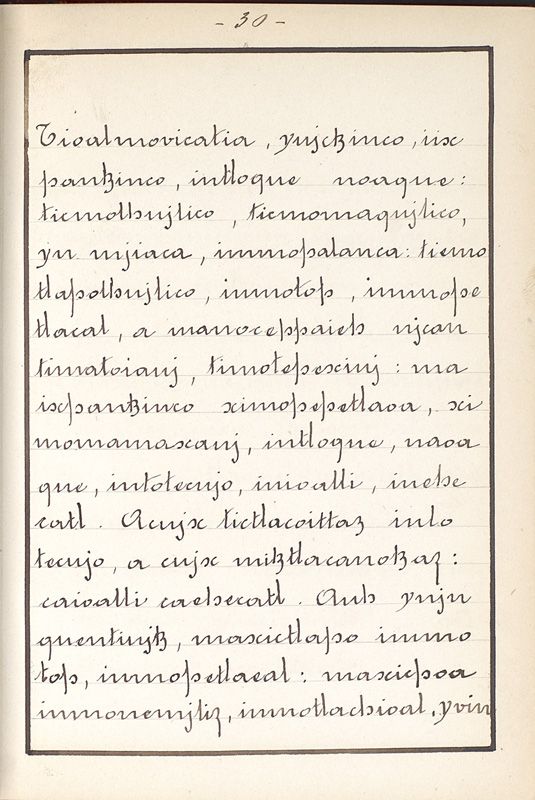 - 30 -
Tioalmovicatia, ynjctzinco, iix
pantzinco, intloque noaque:
ticmolhujlico, ticmomaqujlico,
yn mjiaca, immopalanca: ticmo
tlapolhujlico, immotop, immope
tlacal, a manoceppaieh njcan
timatoianj, timotepexinj: ma
ixpantzinco ximopepetlaoa, xi
momamaxanj, intloque, naoa
que, intotecujo, inioalli, inehe
catl. Acujx tictlacoittaz into
tecujo, a cujx mitztlacanotzaz:
caioalli caehecatl. Auh ynjn
quentinjtz, maxictlapo immo
top, immopetlacal: maxicpoa
immonemjliz, immotlachioal, yvin